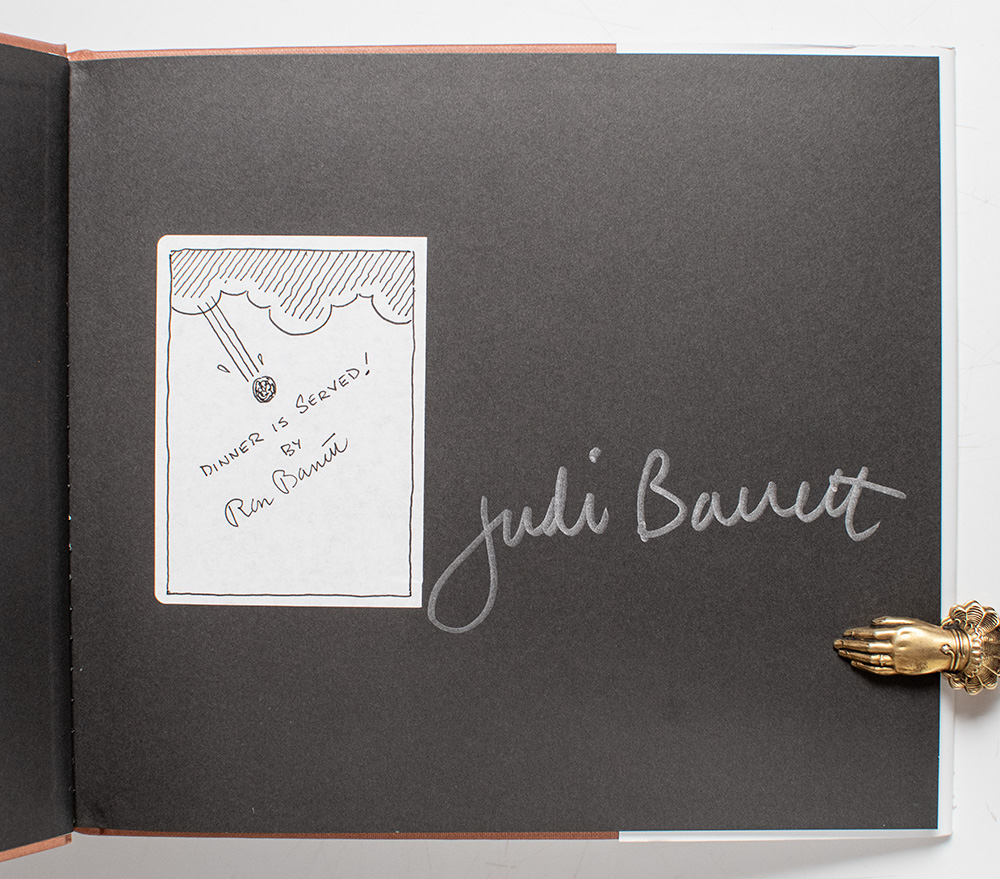 DINNER IS SERVED!
BY
Ron Barrett
Judi Barrett